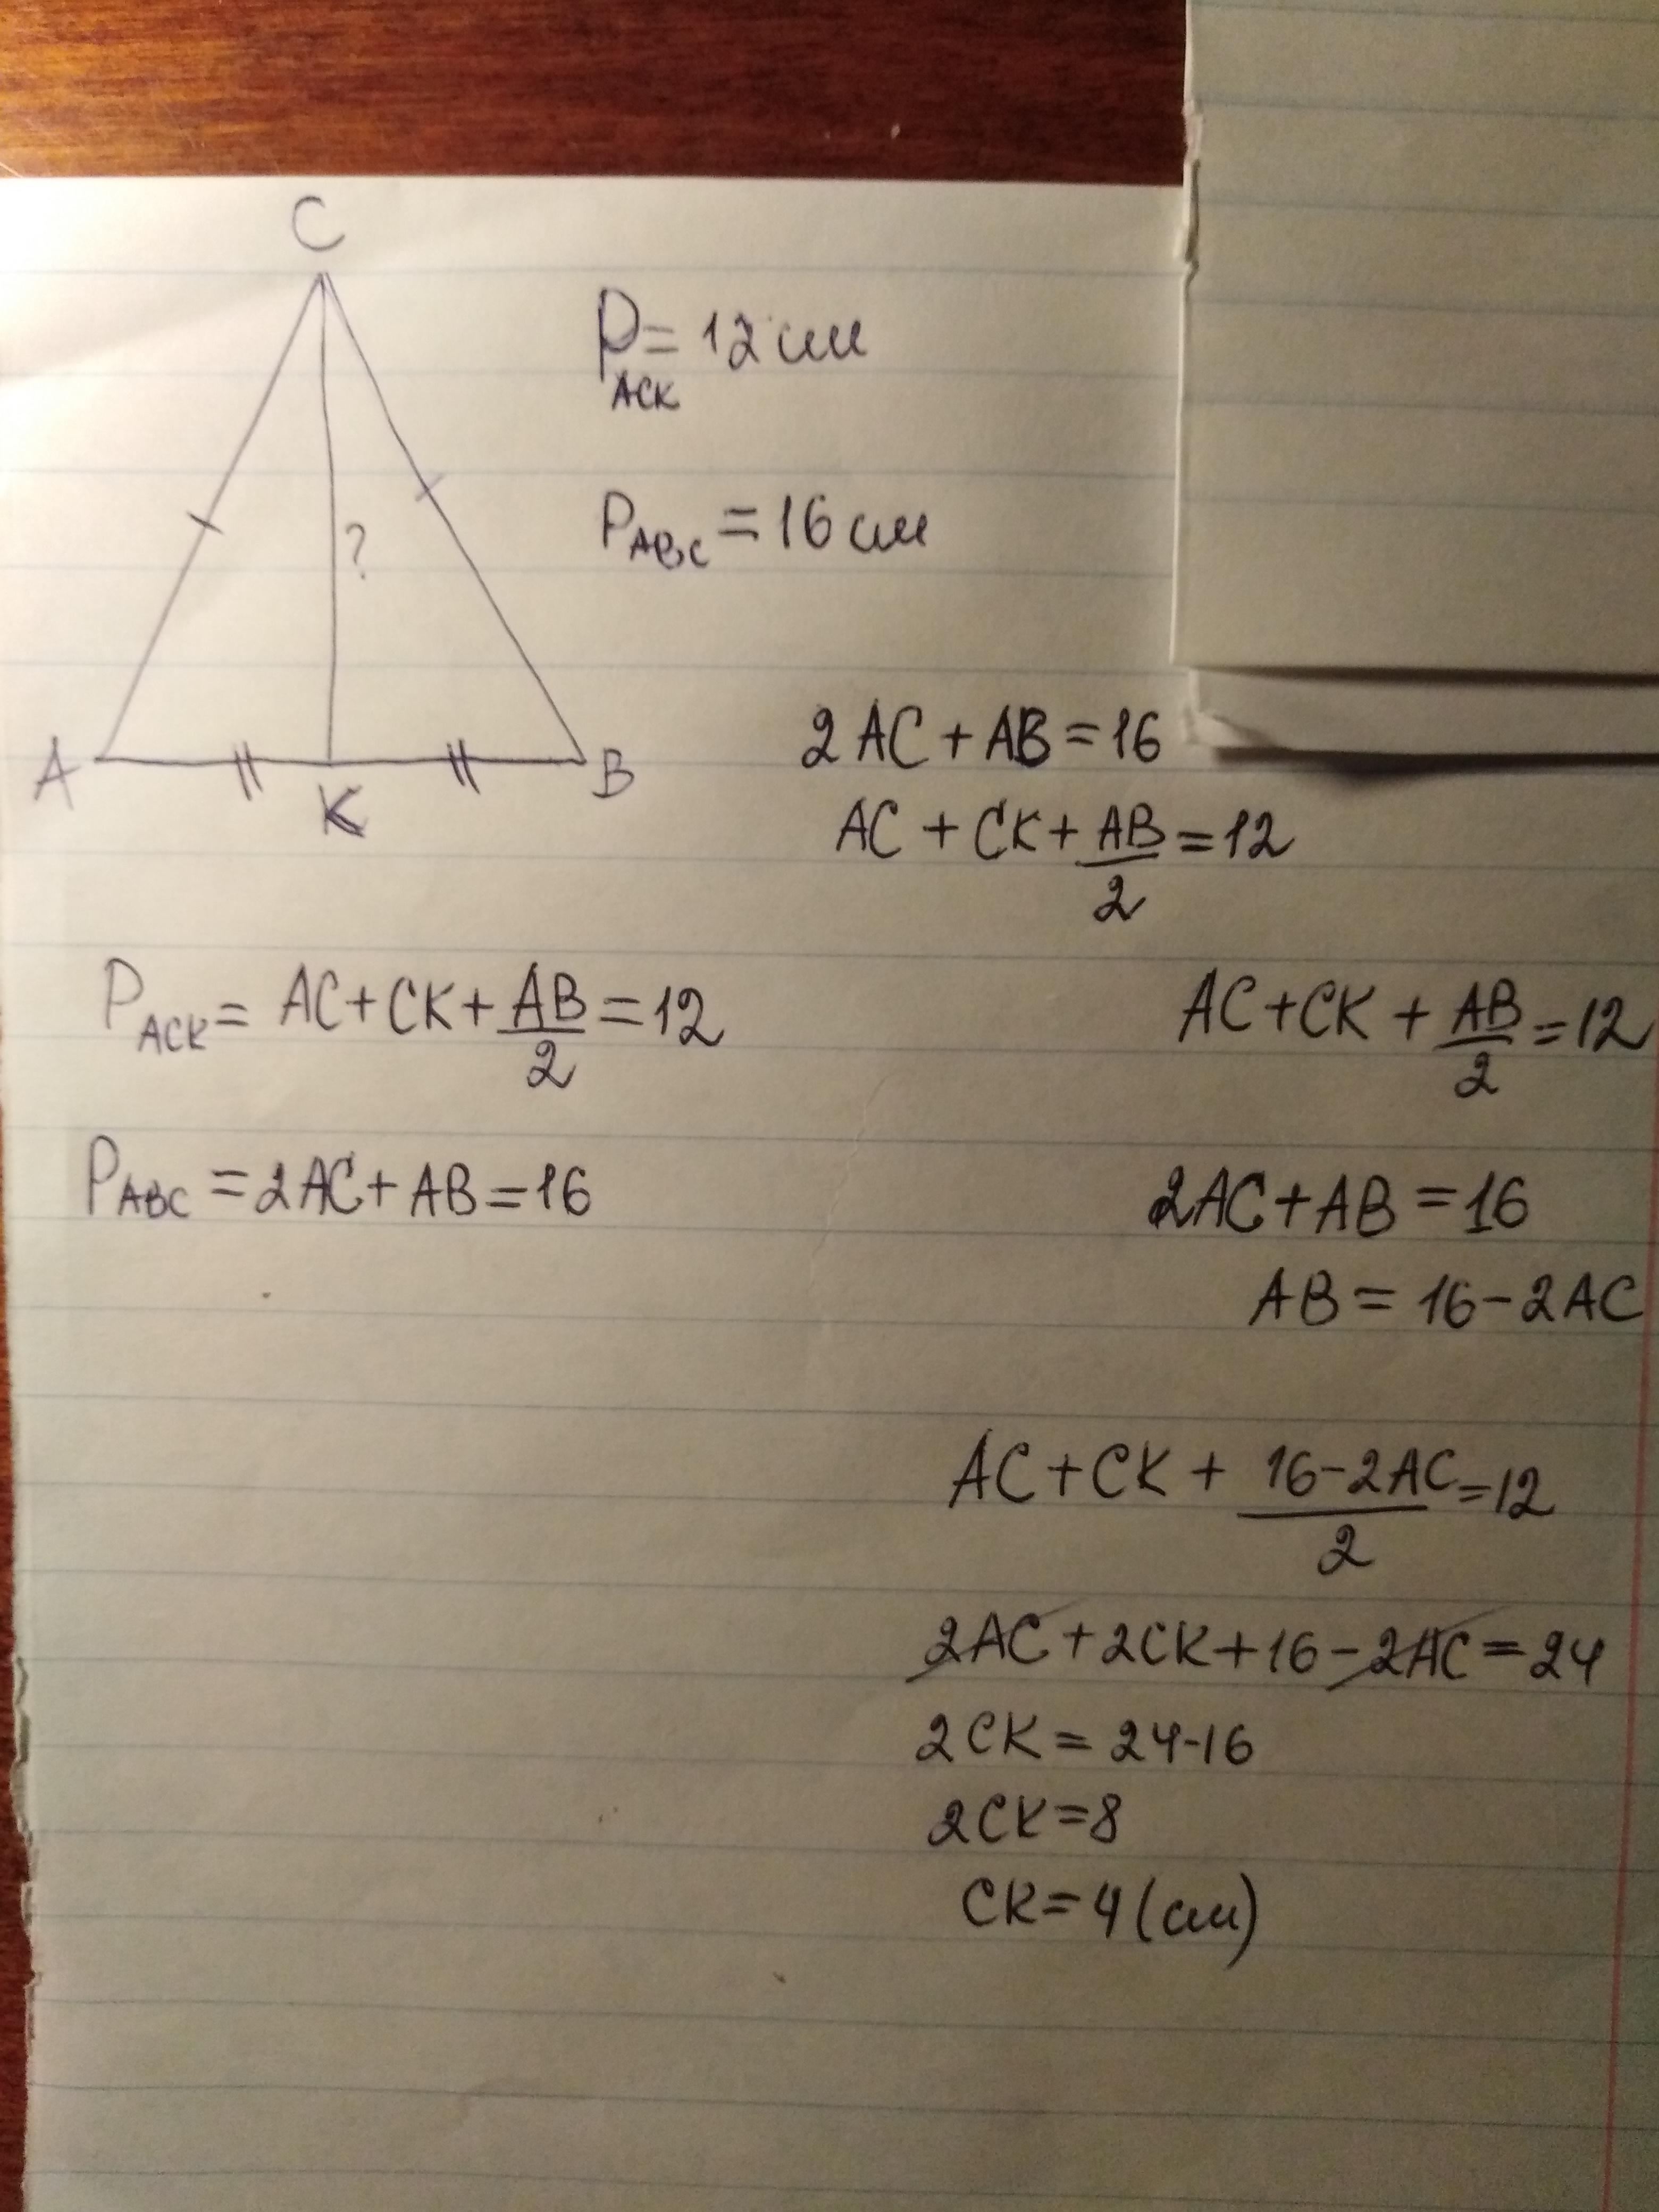 C
P = 12 см
ACK
P_ABC = 16 см
?
A K B
2 AC + AB = 16
AC + CK + AB/2 = 12
P_ACK = AC + CK + AB/2 = 12
AC + CK + AB/2 = 12
P_ABC = 2AC + AB = 16
2AC + AB = 16
AB = 16 - 2AC
AC + CK + (16 - 2AC)/2 = 12
2AC + 2CK + 16 - 2AC = 24
2CK = 24 - 16
2CK = 8
CK = 4 (см)